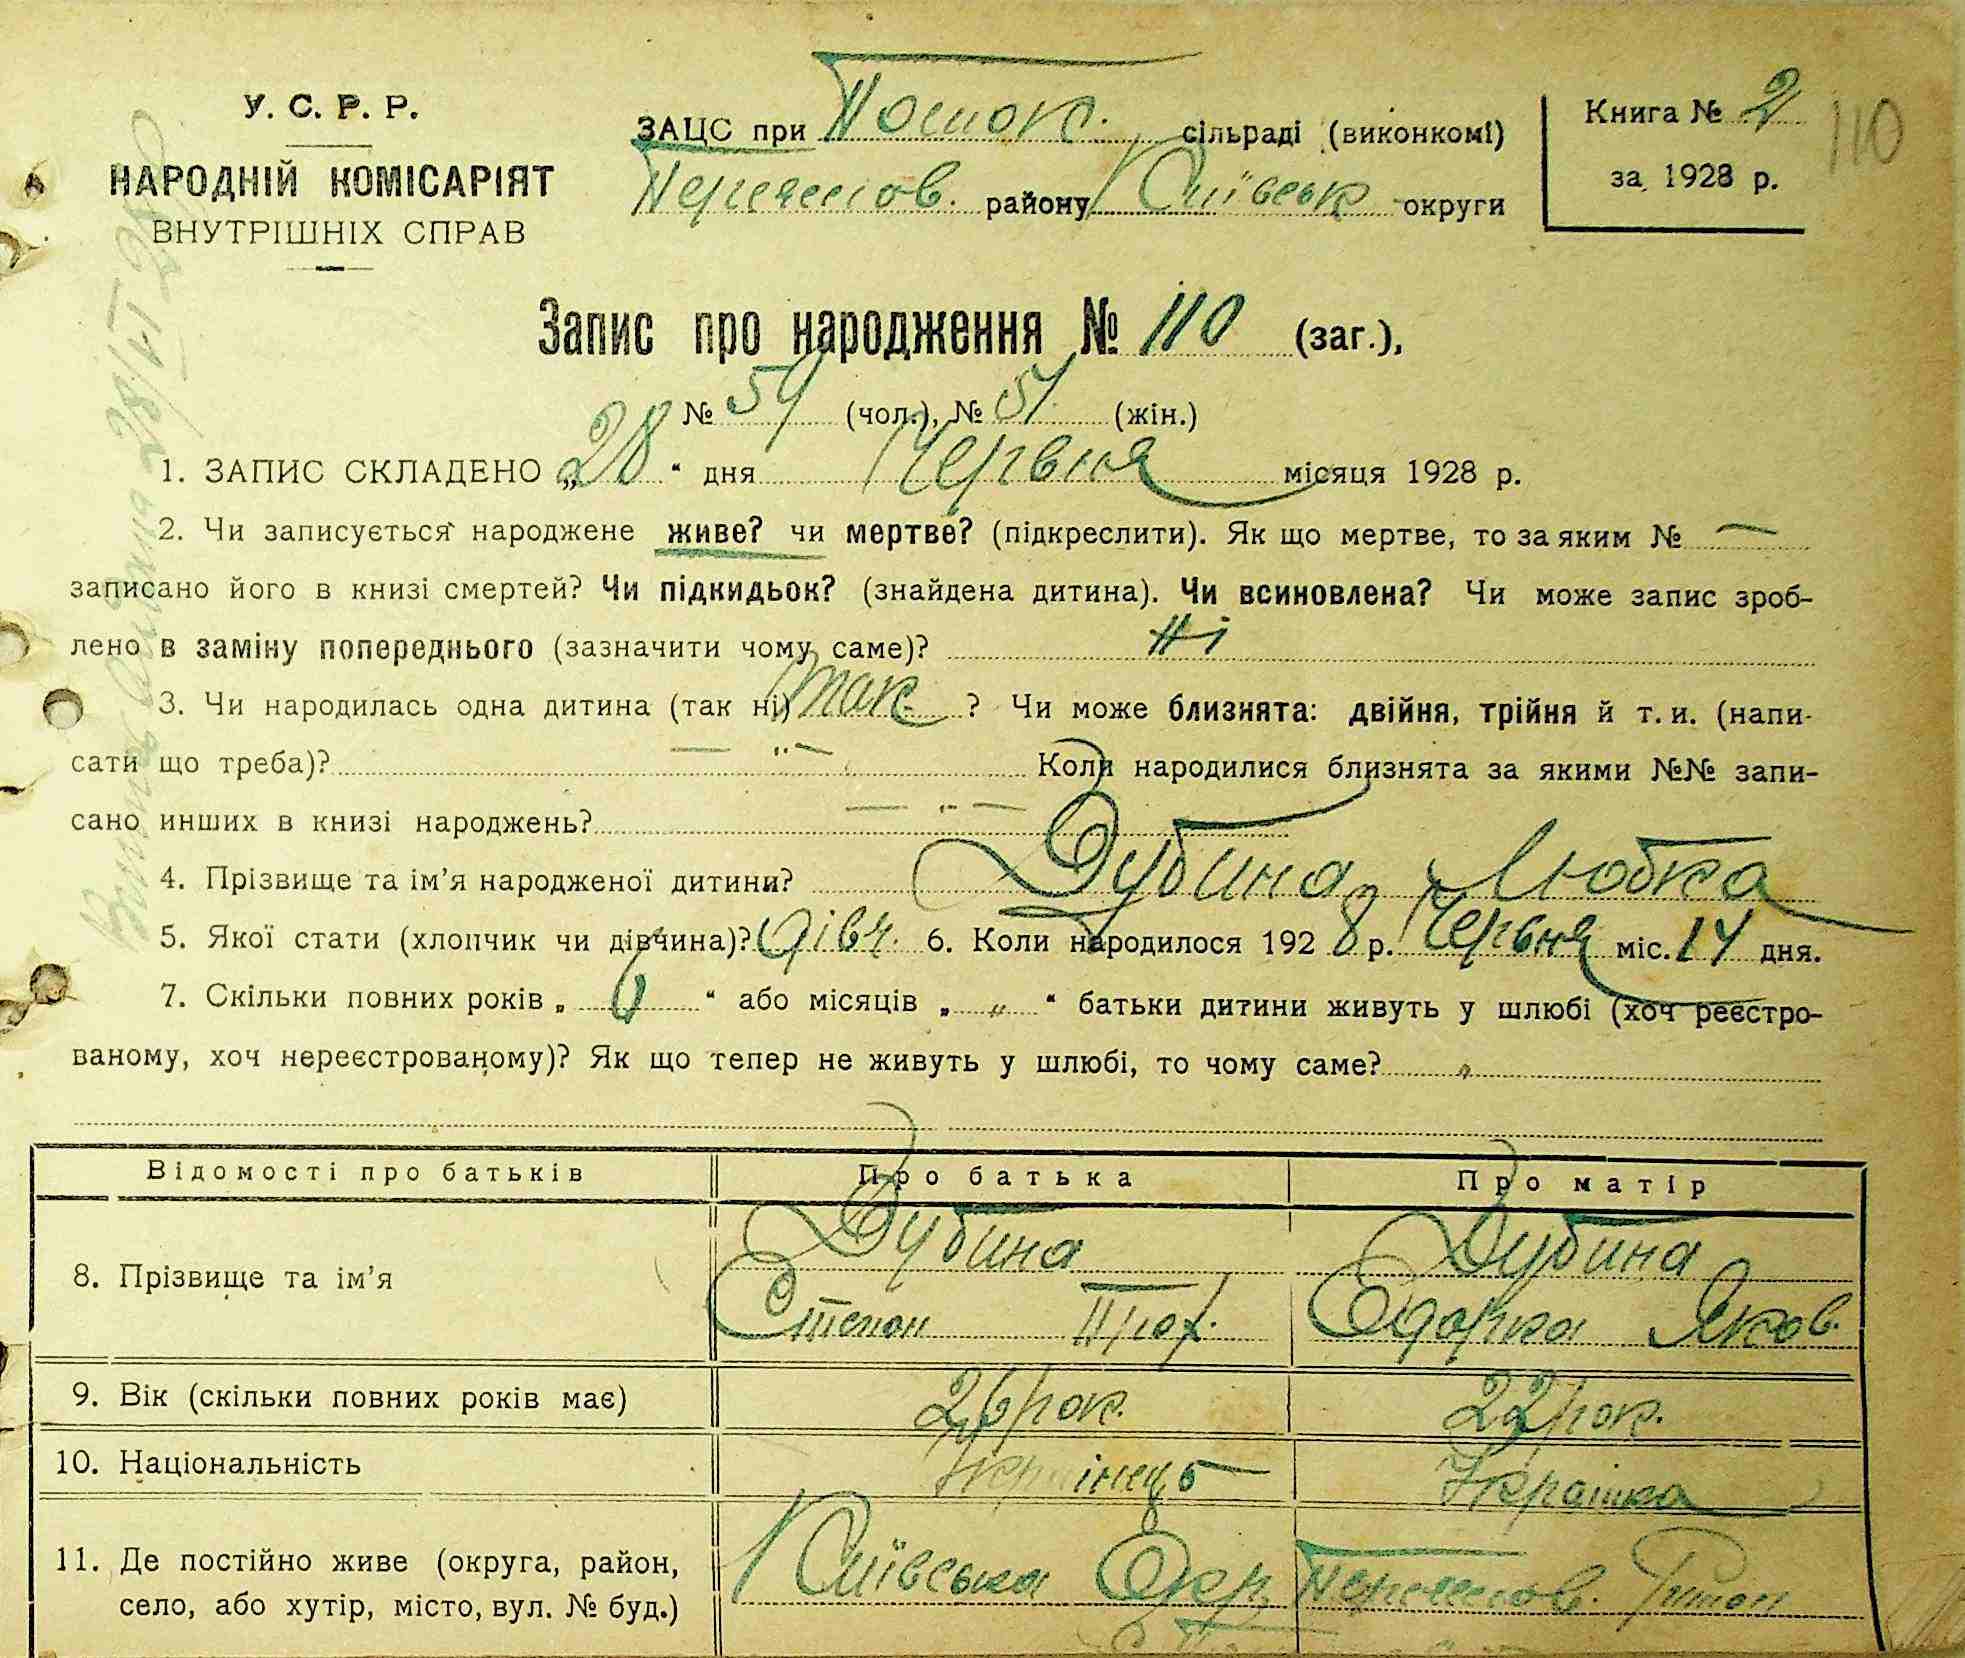 У. С. Р. Р.
НАРОДНІЙ КОМІСАРІЯТ
ВНУТРІШНІХ СПРАВ
ЗАЦС при Пошок. сільраді (виконкомі)
Переяслов. району Київськ округи
Книга № 2
за 1928 р.
110
Запис про народження № 110 (заг.),
№ 59 (чол.), № 51 (жін.)
1. ЗАПИС СКЛАДЕНО „28“ дня Червня місяця 1928 р.
2. Чи записується народжене живе? чи мертве? (підкреслити). Як що мертве, то за яким № —
записано його в книзі смертей? Чи підкидьок? (знайдена дитина). Чи всиновлена? Чи може запис зроб-
лено в заміну попереднього (зазначити чому саме)? Ні
3. Чи народилась одна дитина (так ні) так ? Чи може близнята: двійня, трійня й т. и. (напи-
сати що треба)? — „ — Коли народилися близнята за якими №№ запи-
сано инших в книзі народжень? — „ —
4. Прізвище та ім’я народженої дитини? Дубина Любка
5. Якої стати (хлопчик чи дівчина)? дівч. 6. Коли народилося 1928 р. Червня міс. 14 дня.
7. Скільки повних років „ 6 “ або місяців „ „ “ батьки дитини живуть у шлюбі (хоч реєстро-
ваному, хоч нереєстрованому)? Як що тепер не живуть у шлюбі, то чому саме? „
Відомості про батьків Про батька Про матір
8. Прізвище та ім’я Дубина Степан Прох. Дубина Одарка Яков.
9. Вік (скільки повних років має) 26 рок. 22 рок.
10. Національність Українець Українка
11. Де постійно живе (округа, район,
село, або хутір, місто, вул. № буд.) Київська Окр. Переяслов. Район